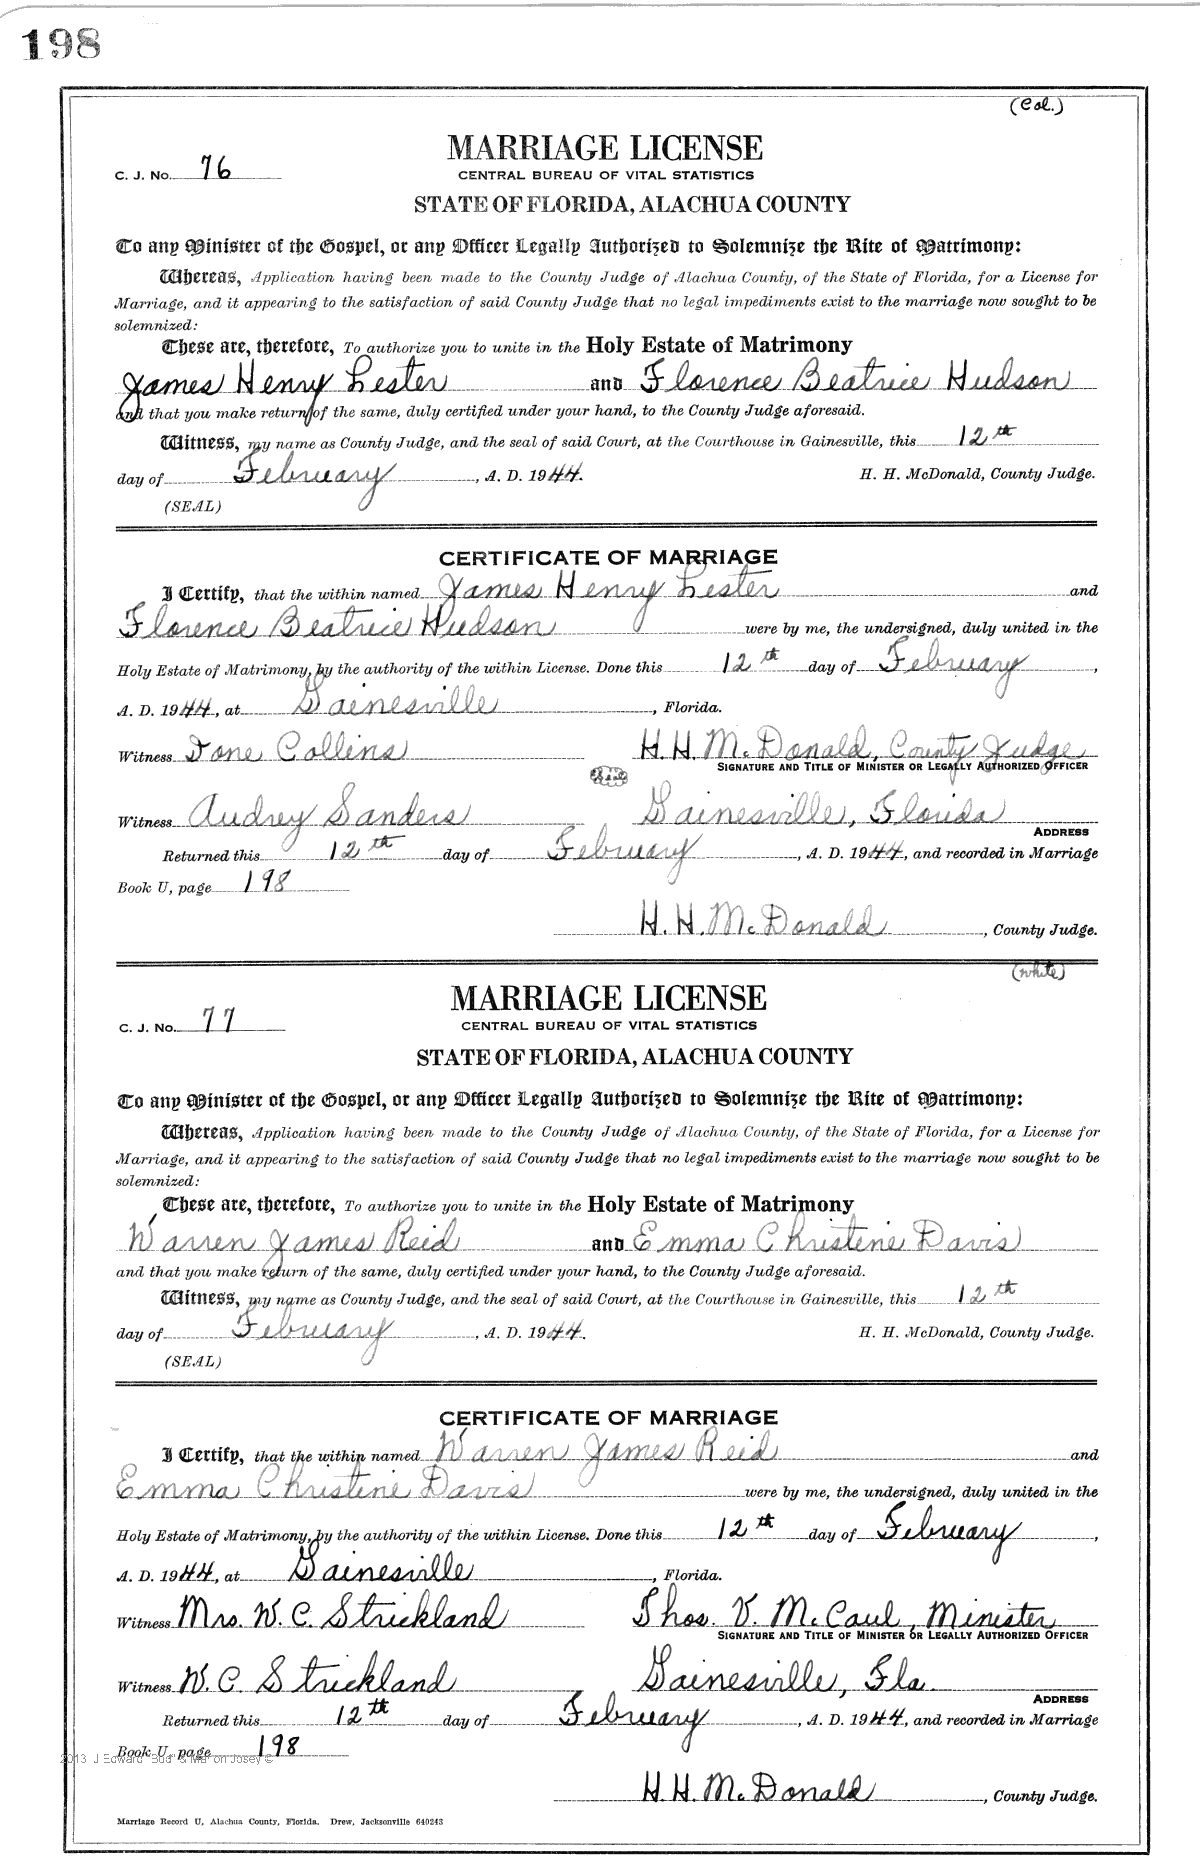 198
(Col.)
MARRIAGE LICENSE
C. J. No. 76
CENTRAL BUREAU OF VITAL STATISTICS
STATE OF FLORIDA, ALACHUA COUNTY
To any Minister of the Gospel, or any Officer Legally Authorized to Solemnize the Rite of Matrimony:
Whereas, Application having been made to the County Judge of Alachua County, of the State of Florida, for a License for
Marriage, and it appearing to the satisfaction of said County Judge that no legal impediments exist to the marriage now sought to be
solemnized:
These are, therefore, To authorize you to unite in the Holy Estate of Matrimony
James Henry Lester and Florence Beatrice Hudson
and that you make return of the same, duly certified under your hand, to the County Judge aforesaid.
Witness, my name as County Judge, and the seal of said Court, at the Courthouse in Gainesville, this 12th
day of February, A. D. 1944. H. H. McDonald, County Judge.
(SEAL)
CERTIFICATE OF MARRIAGE
I Certify, that the within named James Henry Lester and
Florence Beatrice Hudson were by me, the undersigned, duly united in the
Holy Estate of Matrimony, by the authority of the within License. Done this 12th day of February,
A. D. 1944, at Gainesville, Florida.
Witness Ione Collins H. H. McDonald, County Judge
SIGNATURE AND TITLE OF MINISTER OR LEGALLY AUTHORIZED OFFICER
(Seal)
Witness Audrey Sanders Gainesville, Florida
ADDRESS
Returned this 12th day of February, A. D. 1944, and recorded in Marriage
Book U, page 198
H. H. McDonald, County Judge.
(white)
MARRIAGE LICENSE
C. J. No. 77
CENTRAL BUREAU OF VITAL STATISTICS
STATE OF FLORIDA, ALACHUA COUNTY
To any Minister of the Gospel, or any Officer Legally Authorized to Solemnize the Rite of Matrimony:
Whereas, Application having been made to the County Judge of Alachua County, of the State of Florida, for a License for
Marriage, and it appearing to the satisfaction of said County Judge that no legal impediments exist to the marriage now sought to be
solemnized:
These are, therefore, To authorize you to unite in the Holy Estate of Matrimony
Warren James Reid and Emma Christine Davis
and that you make return of the same, duly certified under your hand, to the County Judge aforesaid.
Witness, my name as County Judge, and the seal of said Court, at the Courthouse in Gainesville, this 12th
day of February, A. D. 1944. H. H. McDonald, County Judge.
(SEAL)
CERTIFICATE OF MARRIAGE
I Certify, that the within named Warren James Reid and
Emma Christine Davis were by me, the undersigned, duly united in the
Holy Estate of Matrimony, by the authority of the within License. Done this 12th day of February,
A. D. 1944, at Gainesville, Florida.
Witness Mrs. W. C. Strickland Thos. V. McCaul, Minister
SIGNATURE AND TITLE OF MINISTER OR LEGALLY AUTHORIZED OFFICER
Witness W. C. Strickland Gainesville, Fla.
ADDRESS
Returned this 12th day of February, A. D. 1944, and recorded in Marriage
Book U, page 198
2013 J Edward "Bud" & Marion Josey ©
H. H. McDonald, County Judge.
Marriage Record U, Alachua County, Florida. Drew, Jacksonville 640243